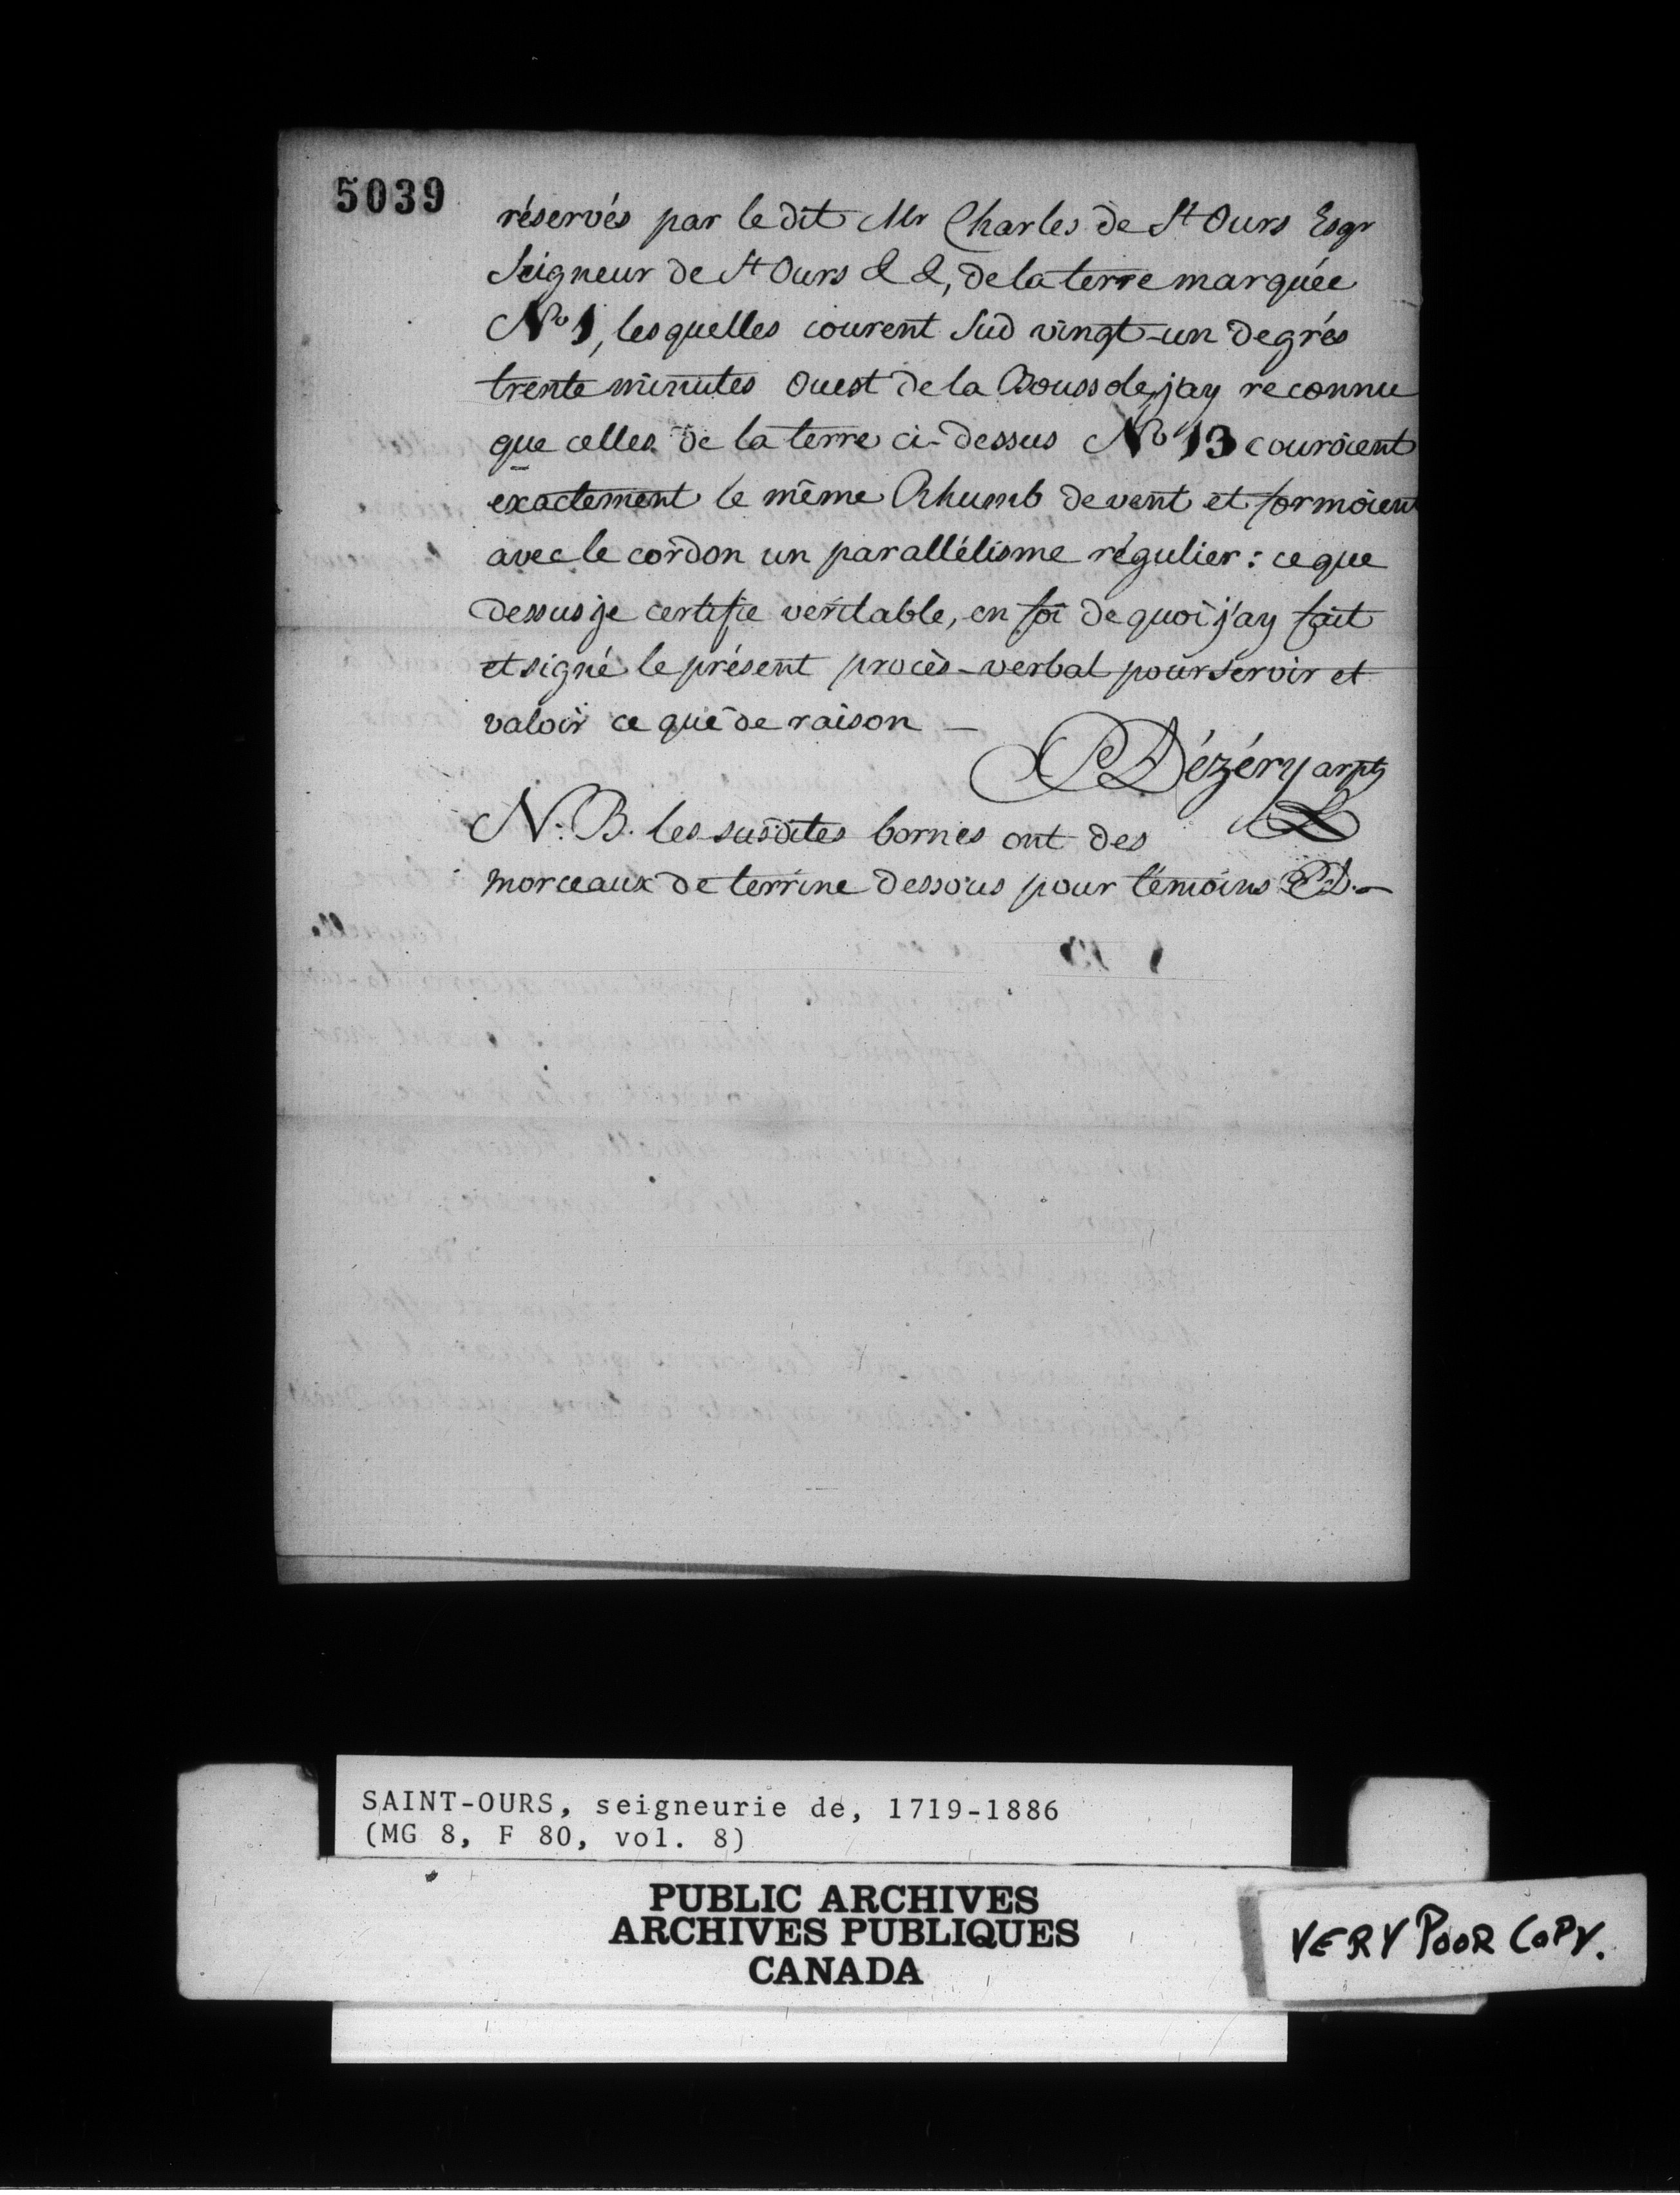 5039
réservés par le dit Mr Charles de St Ours Esqr
Seigneur de St Ours & &, de la terre marquée
No 1, lesquelles courent Sud vingt-un degrés
trente minutes Ouest de la Boussole, j'ay reconnu
que celles de la terre ci-dessus No 13 couroient
exactement le même Rhumb de vent et formoient
avec le cordon un parallélisme régulier : ce que
dessus je certifie véritable, en foi de quoi j'ay fait
et signé le présent procès-verbal pour servoir et
valoir ce que de raison —
Dézéry arptr
N. B. les susdites bornes ont des
morceaux de terrine dessous pour témoins PD.—
SAINT-OURS, seigneurie de, 1719-1886
(MG 8, F 80, vol. 8)
PUBLIC ARCHIVES
ARCHIVES PUBLIQUES
CANADA
VERY POOR COPY.